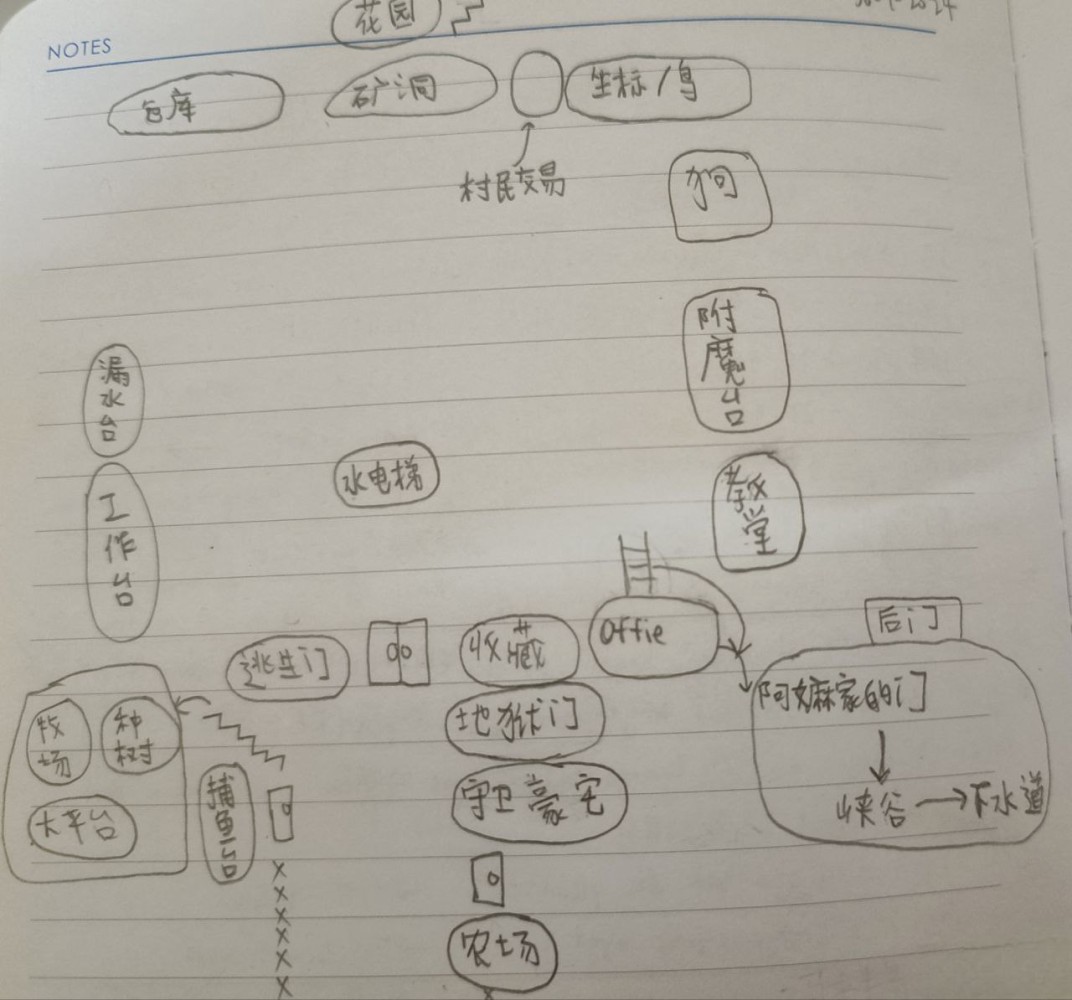 花园
NOTES
仓库
矿洞
坐标/鸟
村民交易
狗
附魔台
漏水台
水电梯
教堂
工作台
Offie
后门
收藏
逃生门
阿嬷家的门
地狱门
牧场
种树
守卫豪宅
捕鱼台
峡谷
下水道
大平台
农场